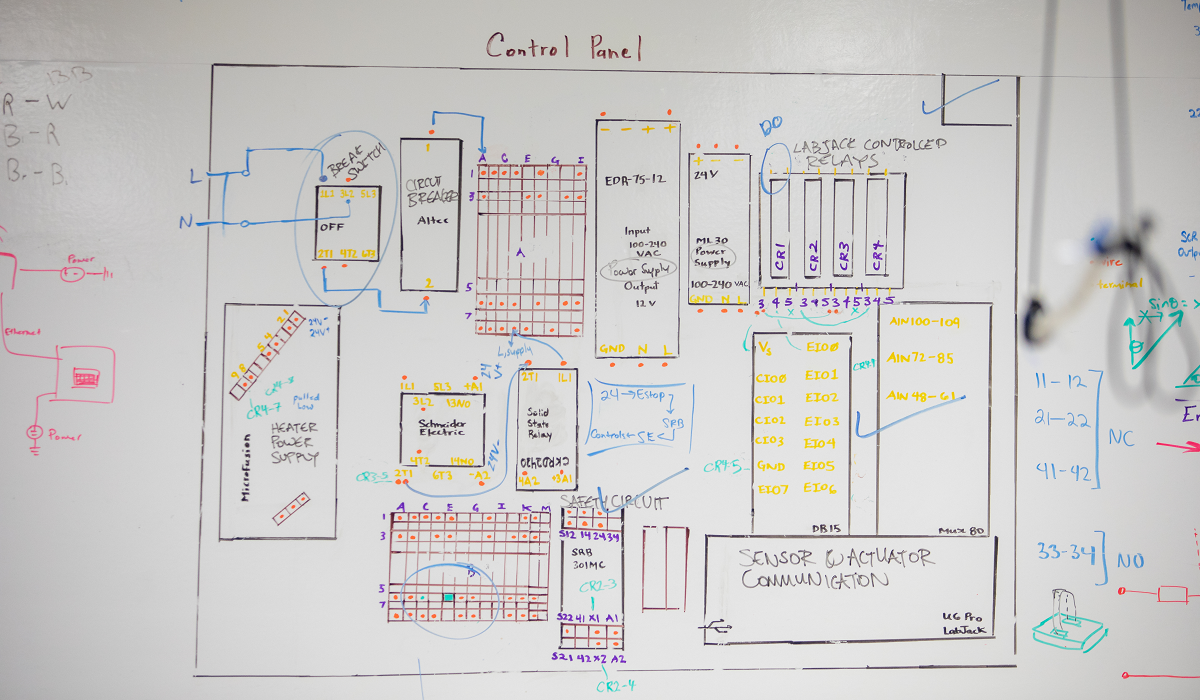 Control Panel
BB
R - W
B. - R
B. - B.
L
N
BREAK
SWITCH
1L1 3L2 5L3
OFF
2T1 4T2 6T3
1
CIRCUT
BREAKER
Altec
2
A C E G I
1
3
A
5
7
- - + +
EDR-75-12
Input
100-240
VAC
Power Supply
Output
12 V
GND N L
+ - -
24V
ML30
Power
Supply
100-240 VAC
GND N L
DO
LABJACK CONTROLLED
RELAYS
CR1
CR2
CR3
CR4
3 4 5 3 4 5 3 4 5 3 4 5
Power
Ethernet
Power
9 8 5 4 2 1
24V-
24V+
CR4-8
CR4-7
pulled
low
HEATER
POWER
SUPPLY
MicroFusion
L, supply
24
V+
1L1 5L3 +A1
3L2 13NO
Schneider
Electric
4T2 14NO
2T1 6T3 -A2
CR3-5
24V-
2T1 1L1
Solid
State
Relay
CKRD2420
4A2 +3A1
24 → Estop
SRB
Controls ← SE
Vs EIO0
CIO0 EIO1
CIO1 EIO2
CIO2 EIO3
CIO3 EIO4
GND EIO5
EIO7 EIO6
CR4-5
DB15
AIN100-109
AIN72-85
AIN 48-61
Mux 80
SAFETY CIRCUIT
S12 14 24 34
SRB
301MC
CR2-3
S22 41 X1 A1
S21 42 X2 A2
CR2-4
A C E G I K M
1
3
B
5
7
SENSOR & ACTUATOR
COMMUNICATION
U6 Pro
LabJack
11-12
21-22
41-42
NC
33-34
NO
terminal
Sinθ =
θ